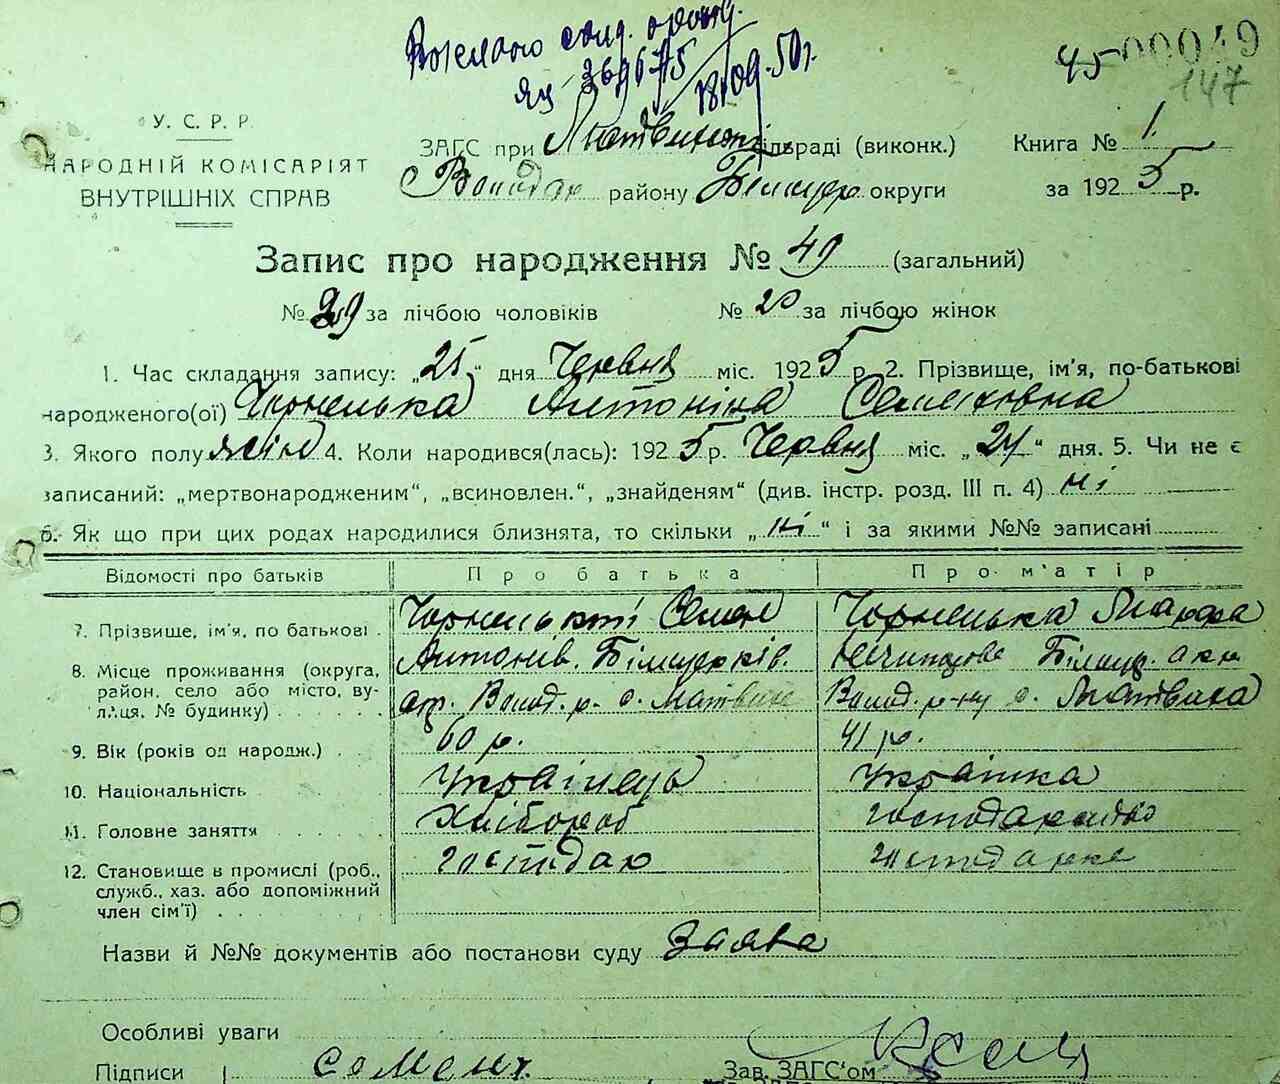 45 00049
147
18/09.50р.
У. С. Р. Р.
НАРОДНІЙ КОМІСАРІЯТ
ВНУТРІШНІХ СПРАВ
ЗАГС при сільраді (виконк.)
району округи
Книга № 1.
за 1925 р.
Запис про народження № 49 (загальний)
№ 29 за лічбою чоловіків № 20 за лічбою жінок
1. Час складання запису: „25“ дня Червня міс. 1925 р. 2. Прізвище, ім'я, по-батькові
народженого(ої) Чорненька Антоніна Семенівна
3. Якого полу жін 4. Коли народився(лась): 1925 р. Червня міс. „24“ дня. 5. Чи не є
записаний: „мертвонародженим“, „всиновлен.“, „знайденям“ (див. інстр. розд. III п. 4) ні
6. Як що при цих родах народилися близнята, то скільки „ні“ і за якими №№ записані
Відомості про батьків Про батька Про м'атір
7. Прізвище, ім'я, по батькові . Чорненький Семен Чорненька
8. Місце проживання (округа, Антонів.
район, село або місто, ву- р. с. р-ну с.
лиця, № будинку) . . . . . .
9. Вік (років од народж.) . . 60 р. 41 р.
10. Національність Українець Українка
11. Головне заняття . . . . . Хлібороб
12. Становище в промислі (роб., господар
служб., хаз. або допоміжний
член сім'ї) . . . . . . .
Назви й №№ документів або постанови суду Заява
Особливі уваги
Підписи Зав. ЗАГС'ом